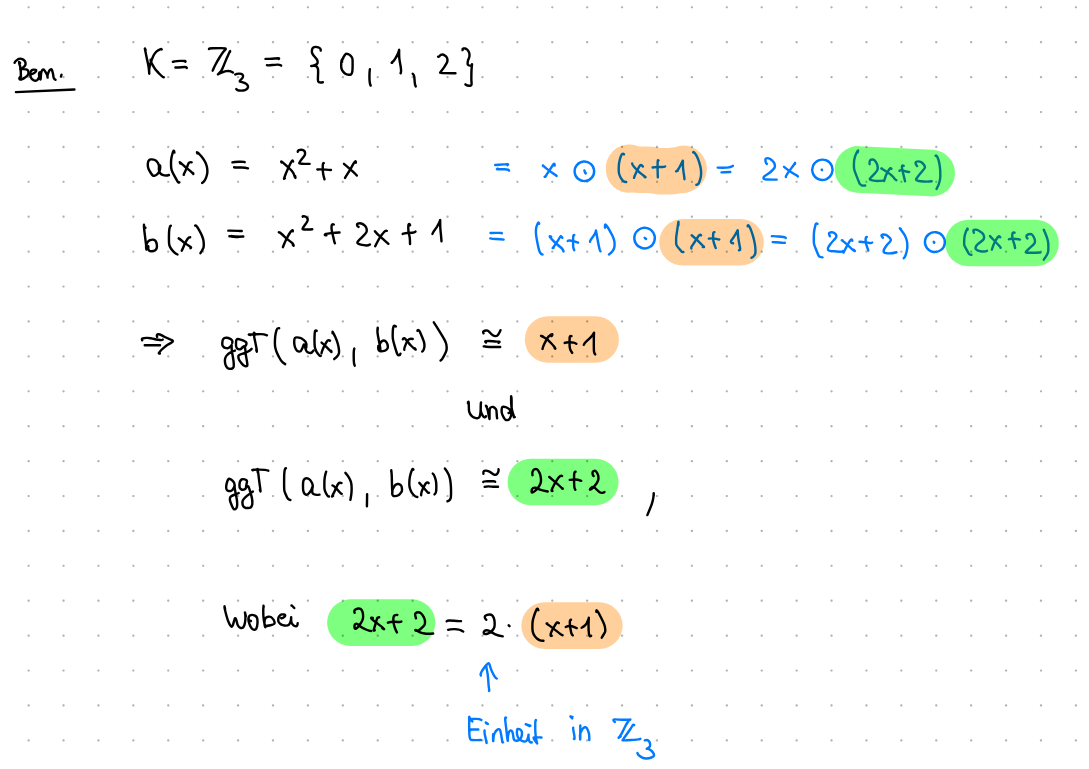 Bem. K = ℤ₃ = { 0, 1, 2}
a(x) = x² + x = x ⊙ (x+1) = 2x ⊙ (2x+2)
b(x) = x² + 2x + 1 = (x+1) ⊙ (x+1) = (2x+2) ⊙ (2x+2)
⇒ ggT(a(x), b(x)) ≅ x+1
und
ggT(a(x), b(x)) ≅ 2x+2 ,
wobei 2x+2 = 2·(x+1)
↑
Einheit in ℤ₃